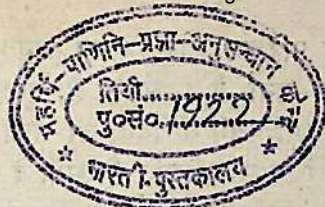 महर्षि-पाणिनि-प्रज्ञा-अनुसन्धान
तिथी..............
पु०सं० 1922
* भारती-पुस्तकालय *